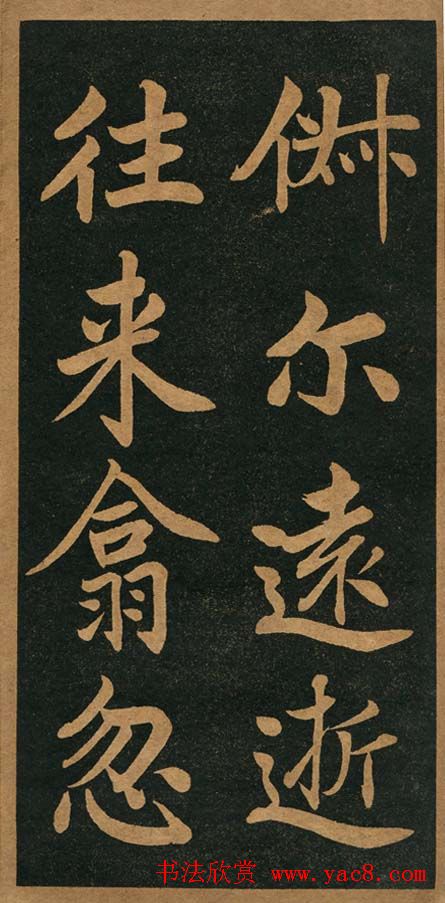 俶尔遠逝
往来翕忽
书法欣赏 www.yac8.com